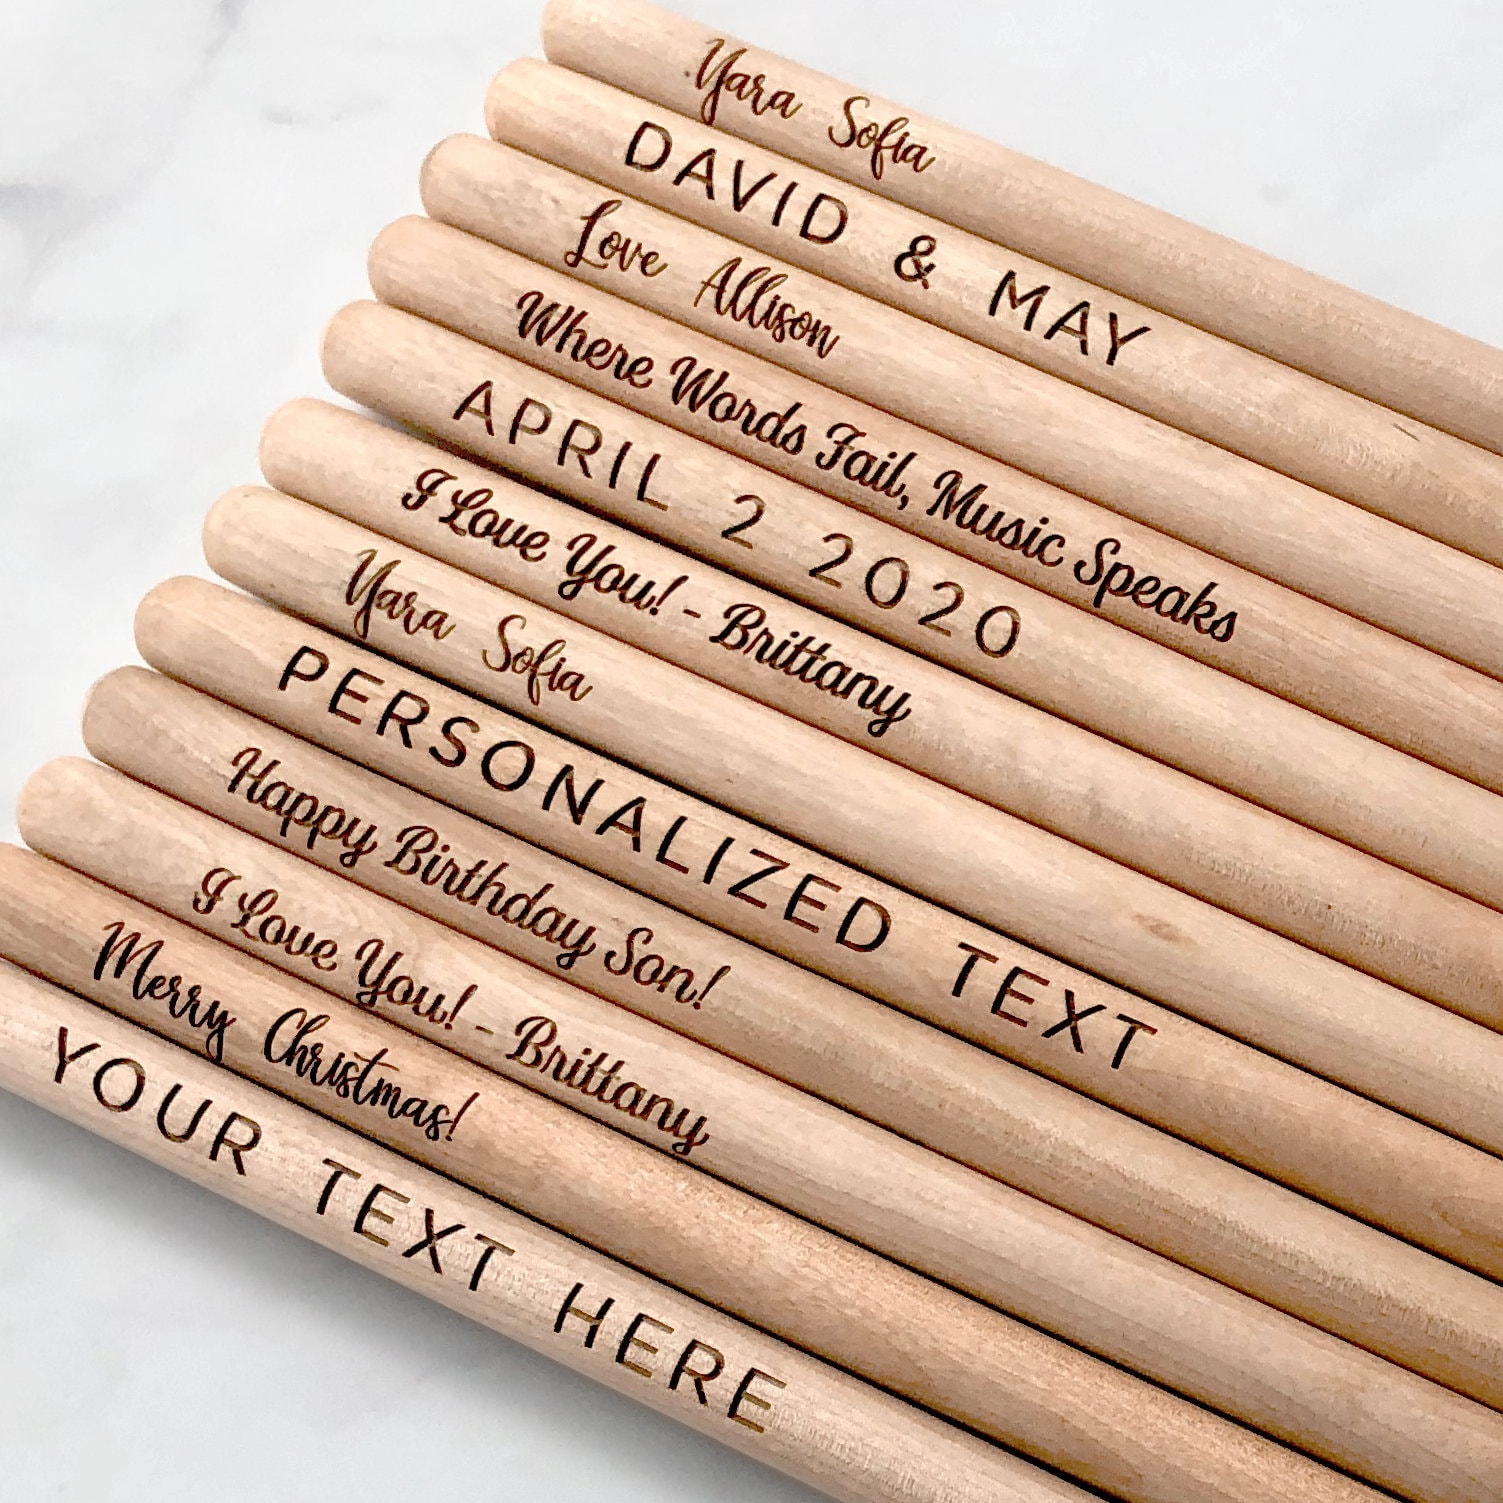 Yara Sofia
DAVID & MAY
Love Allison
Where Words Fail, Music Speaks
APRIL 2 2020
I Love You! - Brittany
Yara Sofia
PERSONALIZED TEXT
Happy Birthday Son!
I Love You! - Brittany
Merry Christmas!
YOUR TEXT HERE